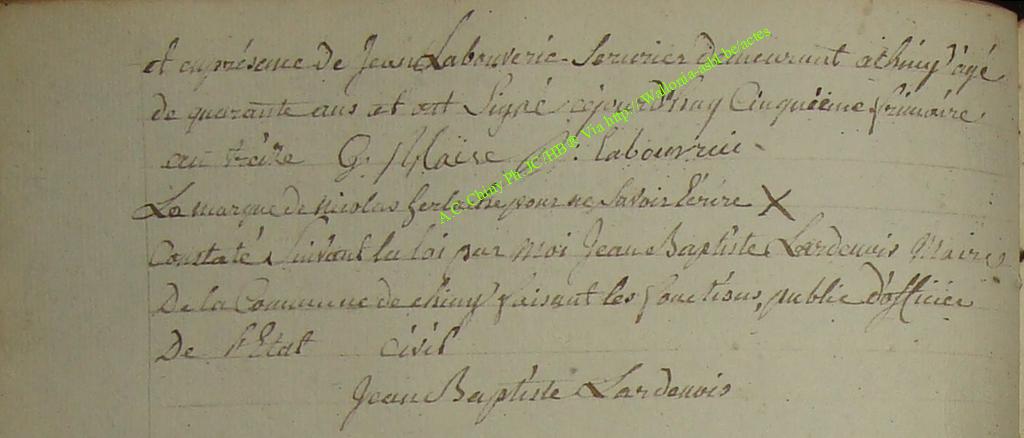 et en présence de Jean Labouverie Serurier demeurant a chiny âgé
de quarante ans et ont Signé cejourd'huy Cinquième frimaire
an treize G. Maise J. labouvrie
La marque de nicolas gerlache pour ne Savoir Écrire X
Constaté Suivant la loi par moi Jean Baptiste Lardenois Maire
De la Commune de chiny faisant les fonctions public d'officier
De l'Etat civil
Jean Baptiste Lardenois
A.C. Chiny Ph. JC HB @ Via http://Wallonia-asbl.be/actes